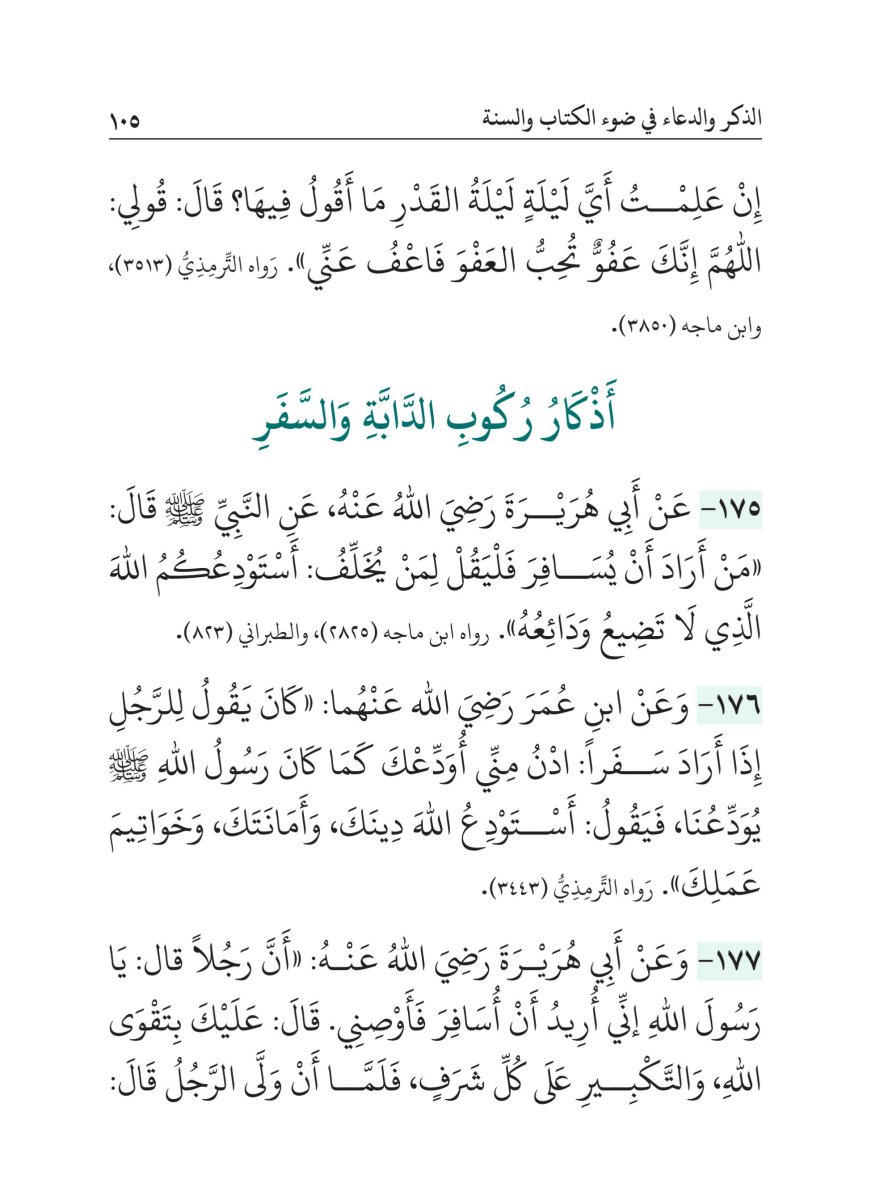 الذكر والدعاء في ضوء الكتاب والسنة ١٠٥
إِنْ عَلِمْــتُ أَيَّ لَيْلَةٍ لَيْلَةُ القَدْرِ مَا أَقُولُ فِيهَا؟ قَالَ: قُولِي:
اللَّهُمَّ إِنَّكَ عَفُوٌّ تُحِبُّ العَفْوَ فَاعْفُ عَنِّي». رَواه التِّرمِذِيُّ (٣٥١٣)،
وابن ماجه (٣٨٥٠).
أَذْكَارُ رُكُوبِ الدَّابَّةِ وَالسَّفَرِ
١٧٥- عَنْ أَبِي هُرَيْــرَةَ رَضِيَ اللهُ عَنْهُ، عَنِ النَّبِيِّ ﷺ قَالَ:
«مَنْ أَرَادَ أَنْ يُسَــافِرَ فَلْيَقُلْ لِمَنْ يُخَلِّفُ: أَسْتَوْدِعُكُمُ اللهَ
الَّذِي لَا تَضِيعُ وَدَائِعُهُ». رواه ابن ماجه (٢٨٢٥)، والطبراني (٨٢٣).
١٧٦- وَعَنْ ابنِ عُمَرَ رَضِيَ الله عَنْهُما: «كَانَ يَقُولُ لِلرَّجُلِ
إِذَا أَرَادَ سَــفَراً: ادْنُ مِنِّي أُوَدِّعْكَ كَمَا كَانَ رَسُولُ اللهِ ﷺ
يُوَدِّعُنَا، فَيَقُولُ: أَسْــتَوْدِعُ اللهَ دِينَكَ، وَأَمَانَتَكَ، وَخَوَاتِيمَ
عَمَلِكَ». رَواه التِّرمِذِيُّ (٣٤٤٣).
١٧٧- وَعَنْ أَبِي هُرَيْــرَةَ رَضِيَ اللهُ عَنْــهُ: «أَنَّ رَجُلاً قال: يَا
رَسُولَ اللهِ إنِّي أُرِيدُ أَنْ أُسَافِرَ فَأَوْصِنِي. قَالَ: عَلَيْكَ بِتَقْوَى
اللهِ، وَالتَّكْبِــيرِ عَلَى كُلِّ شَرَفٍ، فَلَمَّــا أَنْ وَلَّى الرَّجُلُ قَالَ: